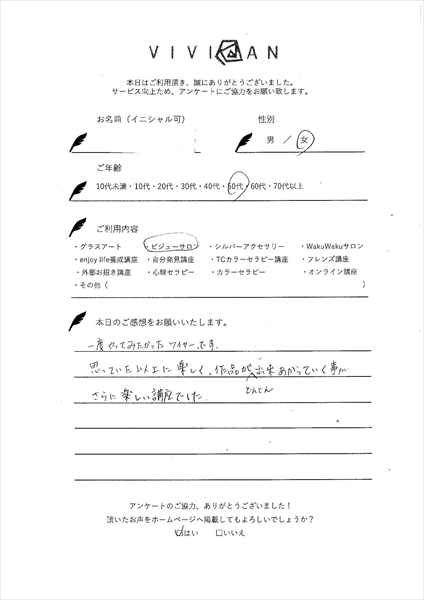 VIVIAN
本日はご利用頂き、誠にありがとうございました。
サービス向上ため、アンケートにご協力をお願い致します。
お名前（イニシャル可）　性別
男 ／ 女
ご年齢
10代未満・10代・20代・30代・40代・50代・60代・70代以上
ご利用内容
・グラスアート　・ビジューサロン　・シルバーアクセサリー　・WakuWakuサロン
・enjoy life養成講座　・自分発見講座　・TCカラーセラピー講座　・フレンズ講座
・外部お招き講座　・心験セラピー　・カラーセラピー　・オンライン講座
・その他（　）
本日のご感想をお願いいたします。
一度やってみたかったワイヤーです。
思っていた以上に楽しく、作品がどんどん出来あがっていく事が
さらに楽しい講座でした。
アンケートのご協力、ありがとうございました！
頂いたお声をホームページへ掲載してもよろしいでしょうか？
☑はい　□いいえ